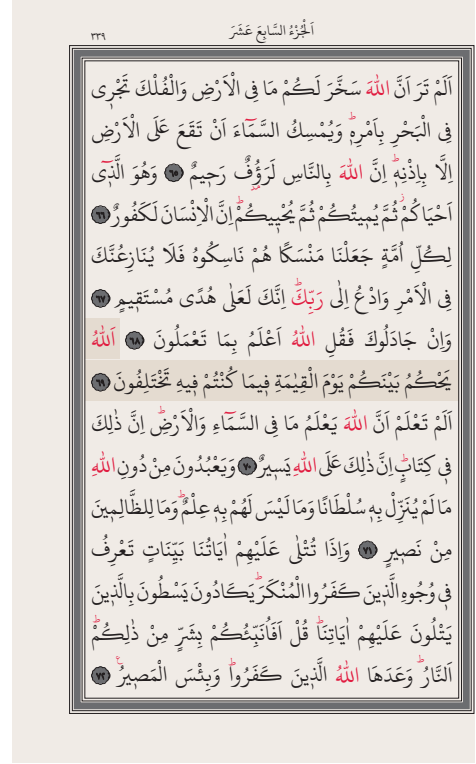 اَلْجُزْءُ السَّابِعَ عَشَرَ
٣٣٩
اَلَمْ تَرَ اَنَّ اللّٰهَ سَخَّرَ لَكُمْ مَا فِي الْاَرْضِ وَالْفُلْكَ تَجْر۪ي
فِي الْبَحْرِ بِاَمْرِه۪ۜ وَيُمْسِكُ السَّمَٓاءَ اَنْ تَقَعَ عَلَى الْاَرْضِ
اِلَّا بِاِذْنِه۪ۜ اِنَّ اللّٰهَ بِالنَّاسِ لَرَؤُ۫فٌ رَح۪يمٌ ﴿٦٥﴾ وَهُوَ الَّذ۪ٓي
اَحْيَاكُمْۘ ثُمَّ يُم۪يتُكُمْ ثُمَّ يُحْي۪يكُمْۜ اِنَّ الْاِنْسَانَ لَكَفُورٌ ﴿٦٦﴾
لِكُلِّ اُمَّةٍ جَعَلْنَا مَنْسَكًا هُمْ نَاسِكُوهُ فَلَا يُنَازِعُنَّكَ
فِي الْاَمْرِ وَادْعُ اِلٰى رَبِّكَۜ اِنَّكَ لَعَلٰى هُدًى مُسْتَق۪يمٍ ﴿٦٧﴾
وَاِنْ جَادَلُوكَ فَقُلِ اللّٰهُ اَعْلَمُ بِمَا تَعْمَلُونَ ﴿٦٨﴾ اَللّٰهُ
يَحْكُمُ بَيْنَكُمْ يَوْمَ الْقِيٰمَةِ ف۪يمَا كُنْتُمْ ف۪يهِ تَخْتَلِفُونَ ﴿٦٩﴾
اَلَمْ تَعْلَمْ اَنَّ اللّٰهَ يَعْلَمُ مَا فِي السَّمَٓاءِ وَالْاَرْضِۜ اِنَّ ذٰلِكَ
ف۪ي كِتَابٍۜ اِنَّ ذٰلِكَ عَلَى اللّٰهِ يَس۪يرٌ ﴿٧٠﴾ وَيَعْبُدُونَ مِنْ دُونِ اللّٰهِ
مَا لَمْ يُنَزِّلْ بِه۪ سُلْطَانًا وَمَا لَيْسَ لَهُمْ بِه۪ عِلْمٌۜ وَمَا لِلظَّالِم۪ينَ
مِنْ نَص۪يرٍ ﴿٧١﴾ وَاِذَا تُتْلٰى عَلَيْهِمْ اٰيَاتُنَا بَيِّنَاتٍ تَعْرِفُ
ف۪ي وُجُوهِ الَّذ۪ينَ كَفَرُوا الْمُنْكَرَۜ يَكَادُونَ يَسْطُونَ بِالَّذ۪ينَ
يَتْلُونَ عَلَيْهِمْ اٰيَاتِنَاۜ قُلْ اَفَاُنَبِّئُكُمْ بِشَرٍّ مِنْ ذٰلِكُمْۜ
اَلنَّارُۜ وَعَدَهَا اللّٰهُ الَّذ۪ينَ كَفَرُواۜ وَبِئْسَ الْمَص۪يرُ۟ ﴿٧٢﴾